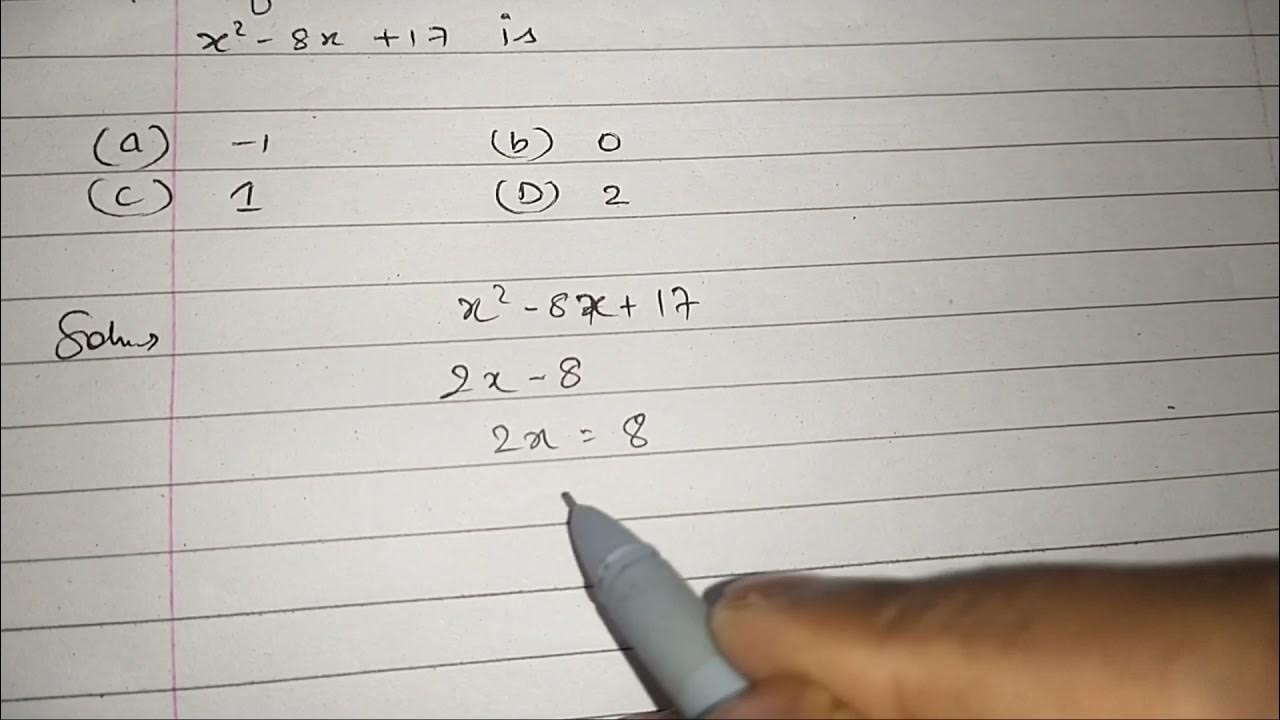 x² - 8x + 17 is
(a) -1 (b) 0
(c) 1 (D) 2
Soln→ x² - 8x + 17
2x - 8
2x = 8